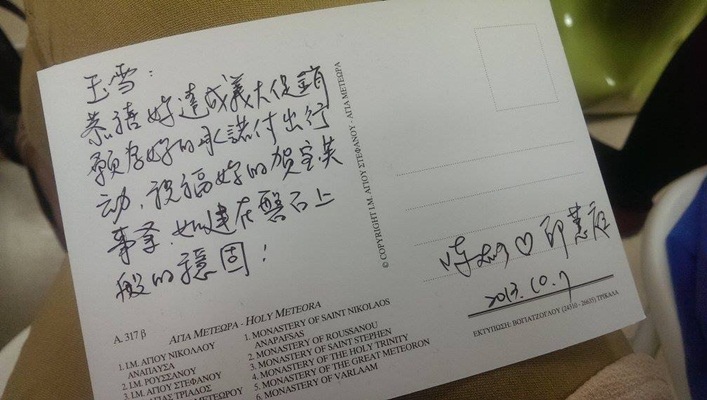 玉雪：
恭禧妳達成義大促銷
願為妳的承諾付出行
动，祝福妳的賀宝芙
事業，如建在磐石上
般的穩固！
♡ 邱慧庭
2013.10.7
© COPYRIGHT Ι.Μ. ΑΓΙΟΥ ΣΤΕΦΑΝΟΥ - ΑΓΙΑ ΜΕΤΕΩΡΑ
Α. 317 β
ΑΓΙΑ ΜΕΤΕΩΡΑ - HOLY METEORA
1. Ι.Μ. ΑΓΙΟΥ ΝΙΚΟΛΑΟΥ
ΑΝΑΠΑΥΣΑ
2. Ι.Μ. ΡΟΥΣΣΑΝΟΥ
3. Ι.Μ. ΑΓΙΟΥ ΣΤΕΦΑΝΟΥ
ΑΓΙΑΣ ΤΡΙΑΔΟΣ
ΜΕΤΕΩΡΟΥ
1. MONASTERY OF SAINT NIKOLAOS
ANAPAFSAS
2. MONASTERY OF ROUSSANOU
3. MONASTERY OF SAINT STEPHEN
4. MONASTERY OF THE HOLY TRINITY
5. MONASTERY OF THE GREAT METEORON
6. MONASTERY OF VARLAAM
ΕΚΤΥΠΩΣΗ: ΒΟΓΙΑΤΖΟΓΛΟΥ (24310 - 20625) ΤΡΙΚΑΛΑ